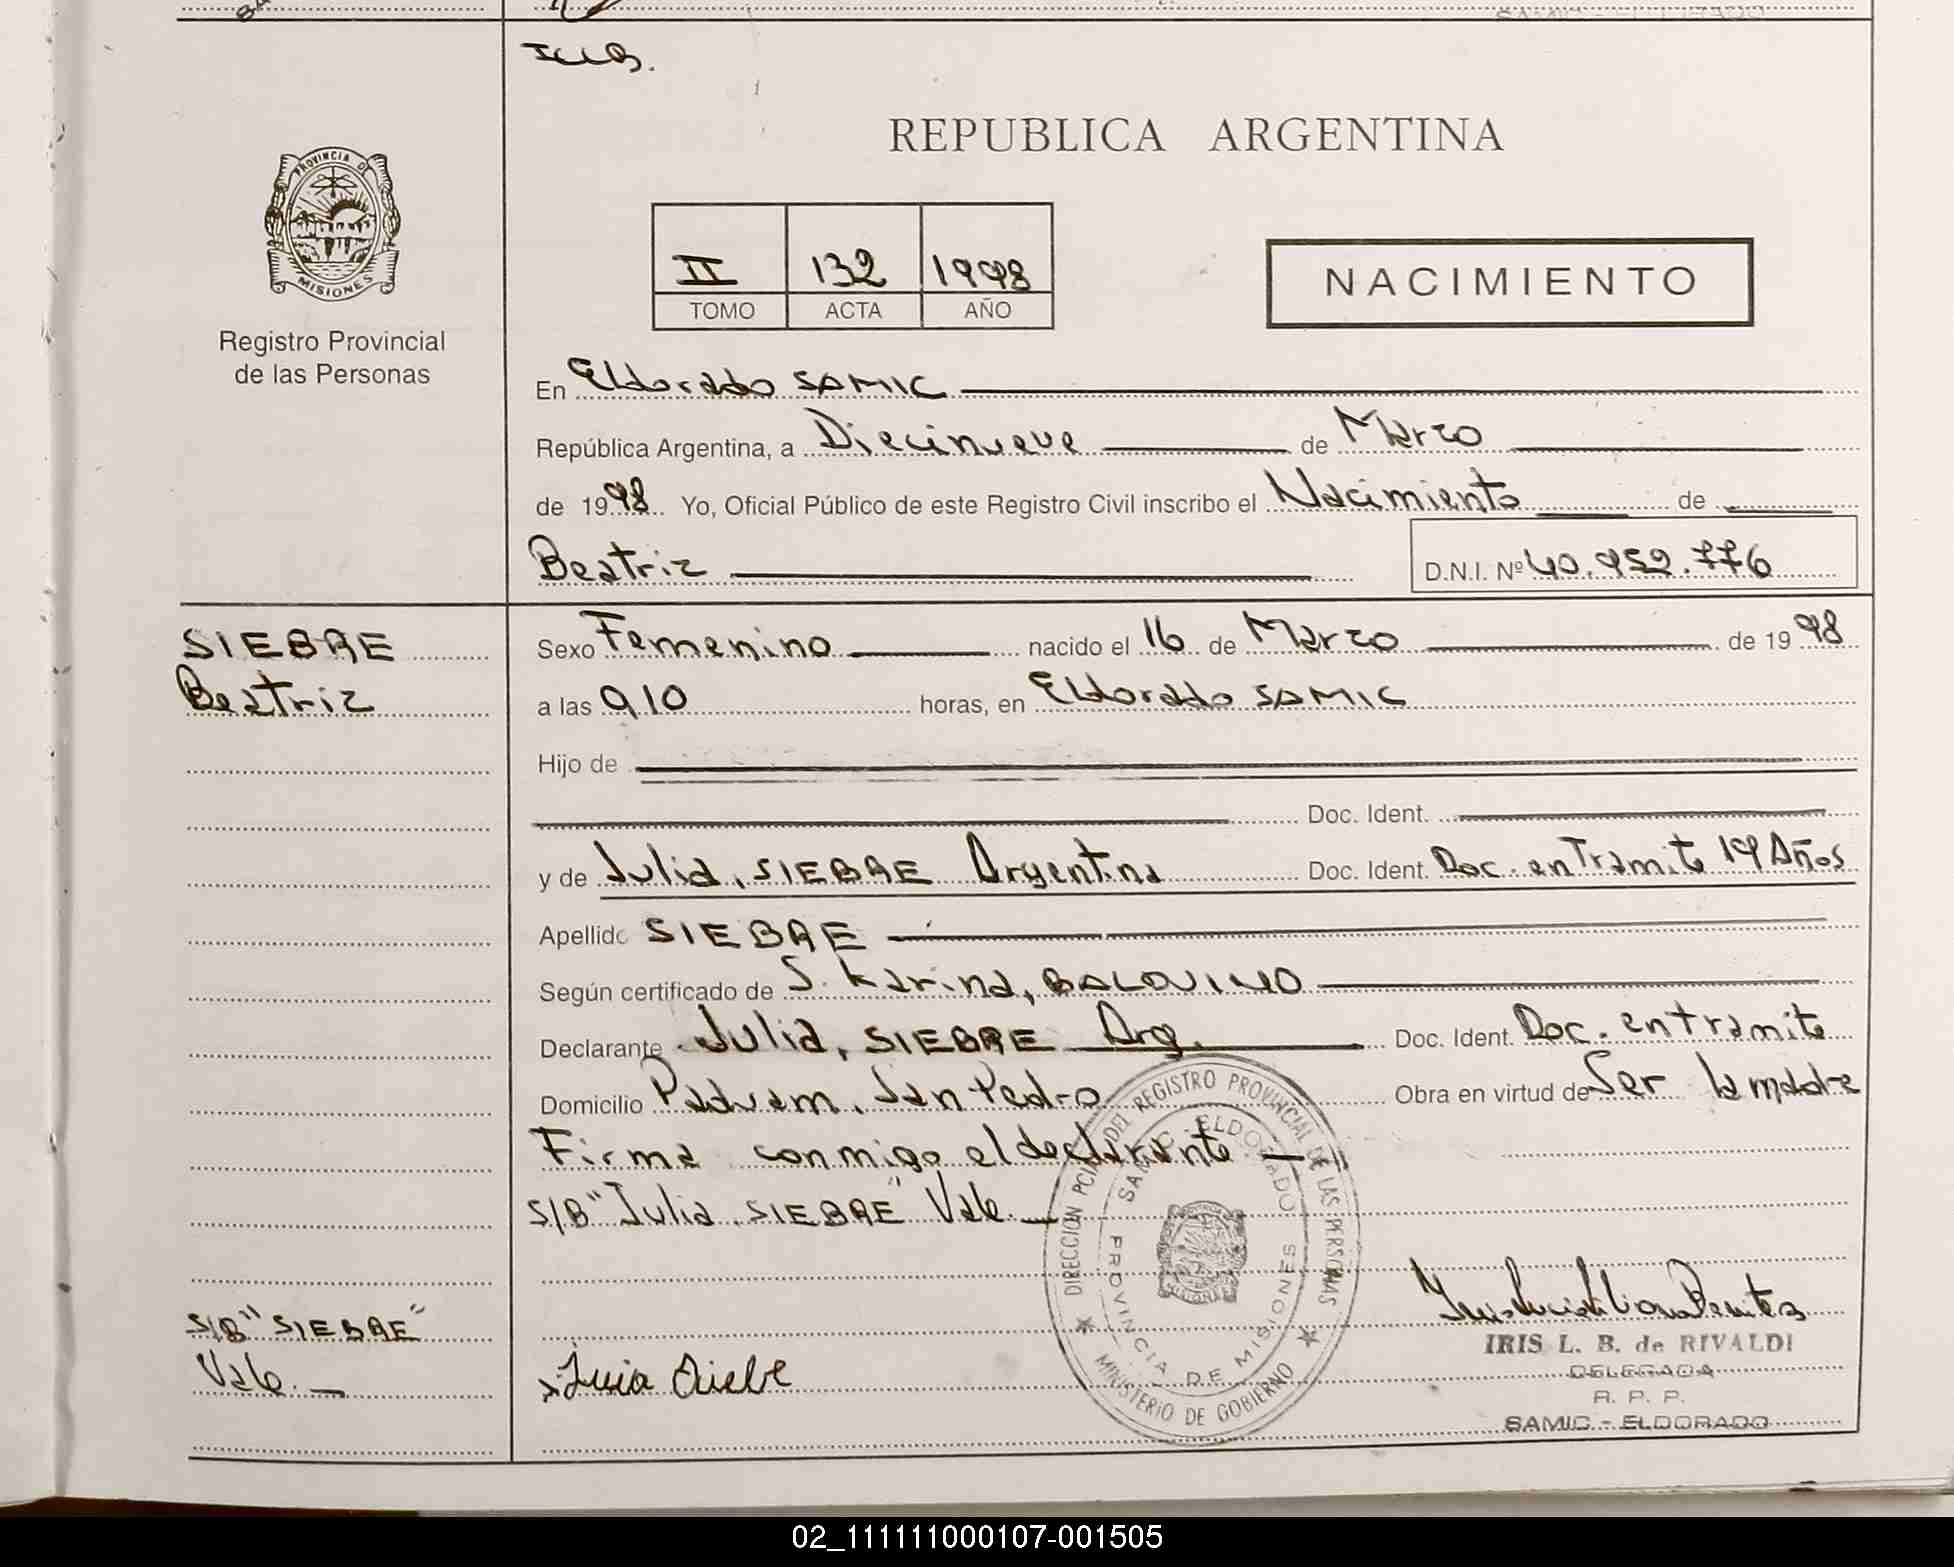 REPUBLICA ARGENTINA
PROVINCIA DE
MISIONES
Registro Provincial
de las Personas
II 132 1998
TOMO ACTA AÑO
NACIMIENTO
En Eldorado SAMIC
República Argentina, a Diecinueve de Marzo
de 1998 Yo, Oficial Público de este Registro Civil inscribo el Nacimiento de
Beatriz D.N.I. Nº 40.952.776
SIEBRE
Beatriz
Sexo Femenino nacido el 16 de Marzo de 1998
a las 9,10 horas, en Eldorado SAMIC
Hijo de
Doc. Ident.
y de Julia, SIEBRE Argentina Doc. Ident. Doc. en Tramite 19 Años
Apellido SIEBRE
Según certificado de S. Karina, BALDUINO
Declarante Julia, SIEBRE Arg. Doc. Ident. Doc. en tramite
Domicilio San Pedro Obra en virtud de Ser la madre
Firma conmigo el declarante
S/B "Julia, SIEBRE" Vale.
S/B "SIEBRE"
Vale.
DIRECCION PCIAL DEL REGISTRO PROVINCIAL DE LAS PERSONAS
MINISTERIO DE GOBIERNO
SAMIC - ELDORADO
PROVINCIA DE MISIONES
IRIS L. B. de RIVALDI
DELEGADA
R. P. P.
SAMIC - ELDORADO
02_111111000107-001505